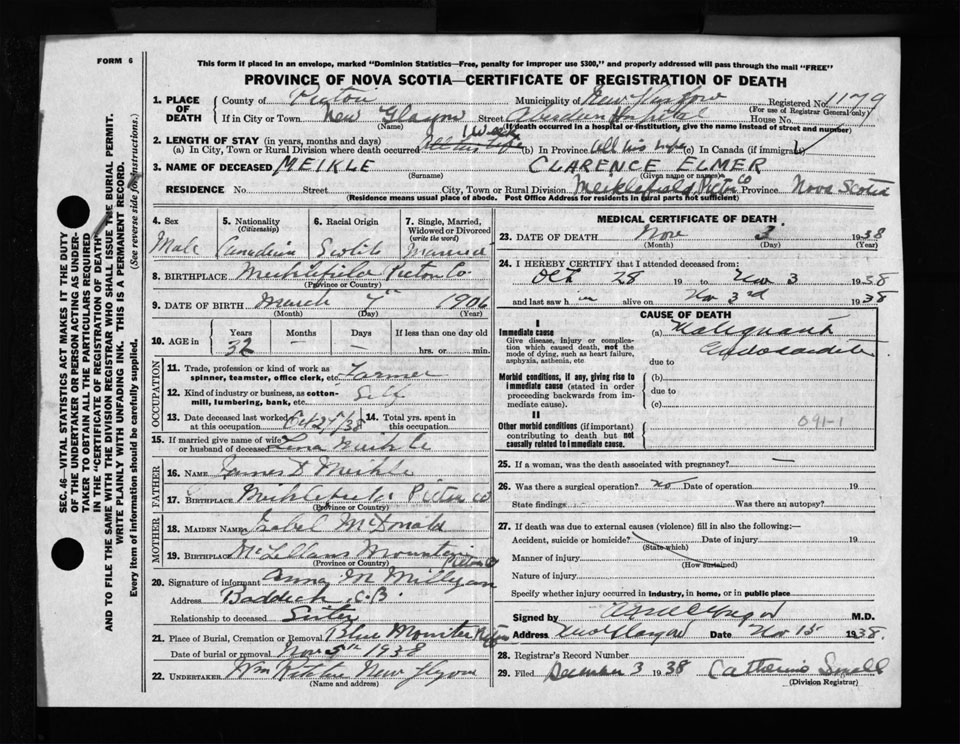 FORM 6
This form if placed in an envelope, marked "Dominion Statistics—Free, penalty for improper use $300," and properly addressed will pass through the mail "FREE"
PROVINCE OF NOVA SCOTIA—CERTIFICATE OF REGISTRATION OF DEATH
1. PLACE OF DEATH
County of Pictou Municipality of New Glasgow Registered No. 1179
(For use of Registrar General only)
If in City or Town New Glasgow Street Aberdeen Hospital House No.
(Name) (If death occurred in a hospital or institution, give the name instead of street and number)
2. LENGTH OF STAY (in years, months and days)
(a) In City, Town or Rural Division where death occurred 1 Week All his life (b) In Province All his life (c) In Canada (if immigrant)
3. NAME OF DECEASED MEIKLE CLARENCE ELMER
(Surname) (Given name or names)
RESIDENCE No. Street City, Town or Rural Division Meiklefield, Pictou Co Province Nova Scotia
(Residence means usual place of abode. Post Office Address for residents in rural parts not sufficient)
4. Sex Male
5. Nationality (Citizenship) Canadian
6. Racial Origin Scotch
7. Single, Married, Widowed or Divorced (write the word) Married
8. BIRTHPLACE Meiklefield Pictou Co
(Province or Country)
9. DATE OF BIRTH March 4th 1906
(Month) (Day) (Year)
10. AGE in Years 32 Months — Days — If less than one day old hrs. or min.
OCCUPATION
11. Trade, profession or kind of work as spinner, teamster, office clerk, etc. Farmer
12. Kind of industry or business, as cotton-mill, lumbering, bank, etc. Self
13. Date deceased last worked at this occupation Oct 27/38
14. Total yrs. spent in this occupation
15. If married give name of wife or husband of deceased Lena Meikle
FATHER
16. NAME James D Meikle
17. BIRTHPLACE Meiklefield Pictou Co
MOTHER
18. MAIDEN NAME Isabel McDonald
19. BIRTHPLACE McLellans Mountain Pictou Co
(Province or Country)
20. Signature of informant Anna M Milligan
Address Baddeck, C.B.
Relationship to deceased Sister
21. Place of Burial, Cremation or Removal Blue Mountain Pictou
Date of burial or removal Nov 5th 1938
22. UNDERTAKER Wm New Glasgow
(Name and address)
MEDICAL CERTIFICATE OF DEATH
23. DATE OF DEATH Nov 3 1938
(Month) (Day) (Year)
24. I HEREBY CERTIFY that I attended deceased from:
Oct 28 19 to Nov 3 1938
and last saw him alive on Nov 3rd 1938
CAUSE OF DEATH
I
Immediate cause
Give disease, injury or complication which caused death, not the mode of dying, such as heart failure, asphyxia, asthenia, etc.
(a) Malignant Endocarditis
due to
Morbid conditions, if any, giving rise to immediate cause (stated in order proceeding backwards from immediate cause).
(b)
due to
(c)
II
Other morbid conditions (if important) contributing to death but not causally related to immediate cause.
091-1
25. If a woman, was the death associated with pregnancy? —
26. Was there a surgical operation? no Date of operation 19
State findings Was there an autopsy?
27. If death was due to external causes (violence) fill in also the following:—
Accident, suicide or homicide? Date of injury 19
(State which)
Manner of injury
(How sustained)
Nature of injury
Specify whether injury occurred in industry, in home, or in public place
Signed by M.D.
Address New Glasgow Date Nov 15 1938.
28. Registrar's Record Number
29. Filed December 3 1938 Catherine Small
(Division Registrar)
SEC. 46—VITAL STATISTICS ACT MAKES IT THE DUTY
OF THE UNDERTAKER OR PERSON ACTING AS UNDER-
TAKER TO OBTAIN ALL THE PARTICULARS REQUIRED
IN THE "CERTIFICATE OF REGISTRATION OF DEATH"
AND TO FILE THE SAME WITH THE DIVISION REGISTRAR WHO SHALL ISSUE THE BURIAL PERMIT.
WRITE PLAINLY WITH UNFADING INK. THIS IS A PERMANENT RECORD.
Every item of Information should be carefully supplied. (See reverse side for instructions.)